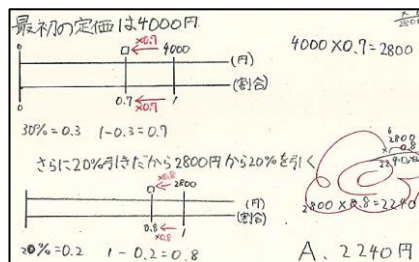 最初の定価は4000円
×0.7
□ 4000
0 (円)
(割合)
0.7 1
×0.7
4000×0.7=2800
30%=0.3 1-0.3=0.7
さらに20%引きだから2800円から20%を引く
×0.8
□ 2800
(円)
(割合)
0.8 1
×0.8
2800×0.8=2240
20%=0.2 1-0.2=0.8
A. 2240円